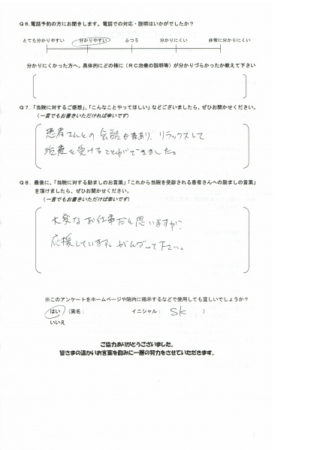 Q6.電話予約の方にお聞きします。電話での対応・説明はいかがでしたか？
とても分かりやすい 分かりやすい ふつう 分かりにくい 非常に分かりにくい
分かりにくかった方へ、具体的にどの様に（RC治療の説明等）が分かりづらかったか教えて下さい
Q7.「当院に対するご感想」、「こんなことやってほしい」などございましたら、ぜひお聞かせください。
（一言でもお書きいただければ幸いです）
患者さんとの会話が為あり、リラックスして
施療を受けることができました。
Q8.最後に、「当院に対する励ましのお言葉」「これから当院を受診される患者さんへの励ましの言葉」
を頂けましたら、ぜひお聞かせください。
（一言でもお書きいただければ幸いです）
大変なお仕事だと思いますが、
応援しています。がんばって下さい。
※このアンケートをホームページや院内に掲示するなどで使用しても宜しいでしょうか？
はい （実名： イニシャル： SK ）
いいえ
ご協力ありがとうございました。
皆さまの温かいお言葉を励みに一層の努力をさせていただきます。